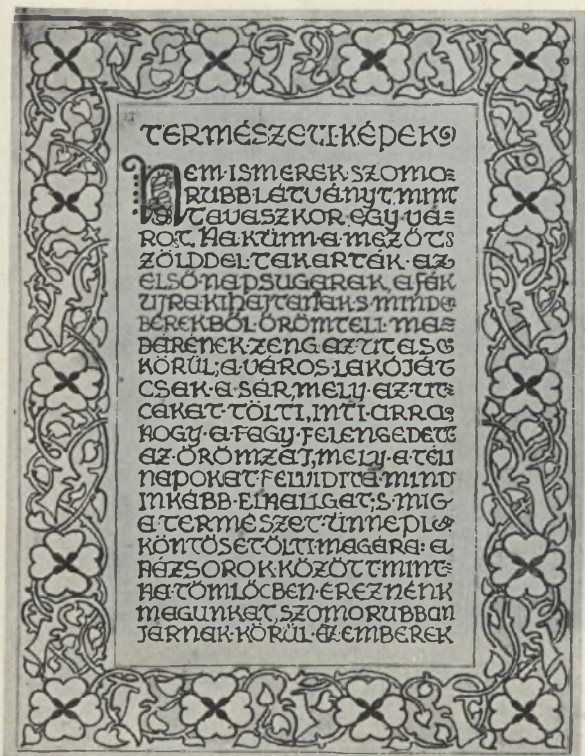 TERMÉSZETI·KÉPEK
NEM·ISMEREK·SZOMO=
RUBB·LÁTVÁNYT, MINT
TAVASZKOR·EGY·VÁ=
ROT. HA·KÜNN·A·MEZŐTS
ZÖLDDEL·TAKARTÁK·AZ
ELSŐ·NAPSUGARAK, A·FÁK
UJRA·KIHAJTANAK·S·MINDE
BÉREKBŐL·ÖRÖMTELI·MA=
DÁRÉNEK·ZENG·AZ·UTAS
KÖRÜL; A·VÁROS·LAKÓJÁT
CSAK·A·SÁR, MELY·AZ·UT=
CÁKAT·TÖLTI, INTI·ARRA,
HOGY·A·FAGY·FELENGEDETT
AZ·ÖRÖMZAJ, MELY·A·TÉLI
NAPOKAT·FELVIDITÁ·MIND
INKÁBB·ELHALLGAT; S·MIG
A·TERMÉSZET·ÜNNEPI
KÖNTÖSÉT·ÖLTI·MAGÁRA: A
HÁZSOROK·KÖZÖTT·MINT=
HA·TÖMLÖCBEN·ÉREZNÉNK
MAGUNKAT, SZOMORUBBAN
JÁRNAK·KÖRÜL·AZ·EMBEREK